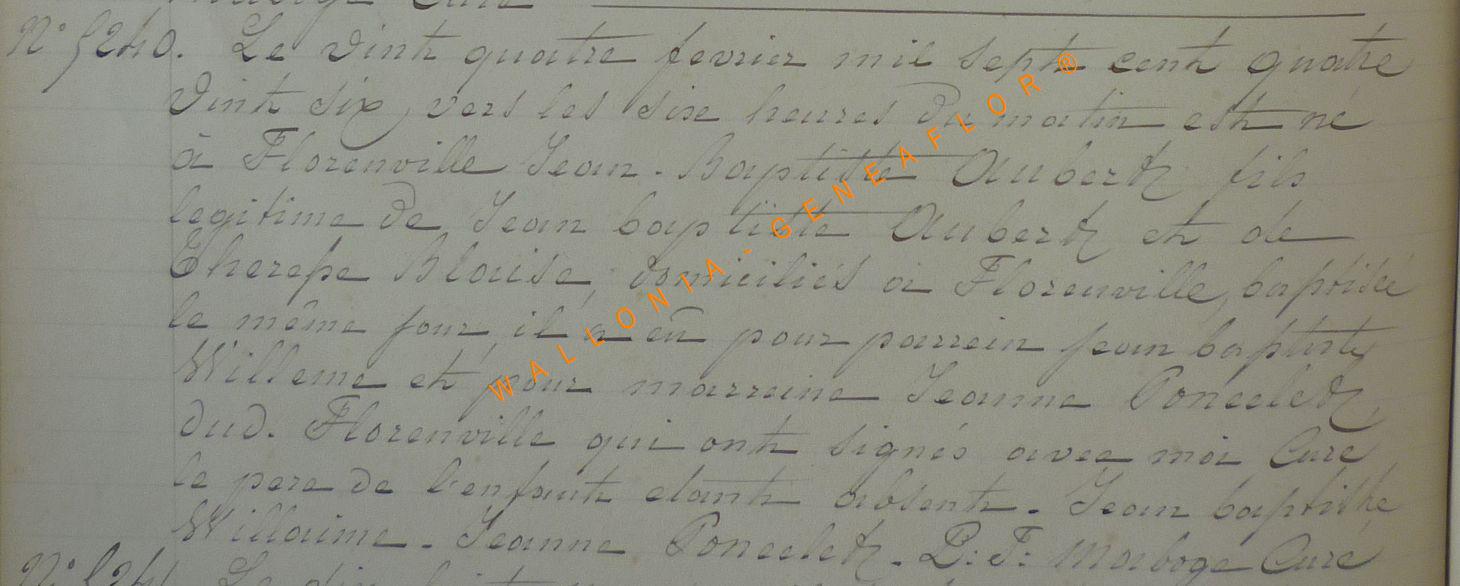 Curé
N° 5240. Le vint quatre fevrier mil sept cent quatre
vint six, vers les six heures du matin est né
à Florenville Jean-Baptiste Aubertz fils
legitime de Jean baptiste Aubertz et de
Therese Blaise, domiciliés à Florenville, baptisé
le même jour, il a eû pour parrein jean baptiste
Willeme et pour marreine Jeanne Ponceletz,
dud. Florenville qui ont signés avec moi Curé
le pere de l'enfant etant absent. Jean baptiste
Willaime. Jeanne Ponceletz. P: F: Maboge Curé
N° 5241. Le dix
WALLONIA-GENEAFLOR®